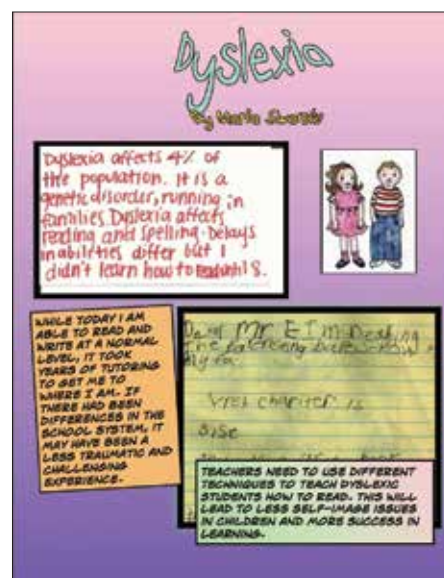 Dyslexia
By Marla
Dyslexia affects 4% of
the population. It is a
genetic disorder, running in
families. Dyslexia affects
reading and spelling. Delays
in abilities differ but I
didn't learn how to read until 8.
WHILE TODAY I AM
ABLE TO READ AND
WRITE AT A NORMAL
LEVEL, IT TOOK
YEARS OF TUTORING
TO GET ME TO
WHERE I AM. IF
THERE HAD BEEN
DIFFERENCES IN THE
SCHOOL SYSTEM, IT
MAY HAVE BEEN A
LESS TRAUMATIC AND
CHALLENGING
EXPERIENCE.
Mr E I'm
The
is
TEACHERS NEED TO USE DIFFERENT
TECHNIQUES TO TEACH DYSLEXIC
STUDENTS HOW TO READ. THIS WILL
LEAD TO LESS SELF-IMAGE ISSUES
IN CHILDREN AND MORE SUCCESS IN
LEARNING.